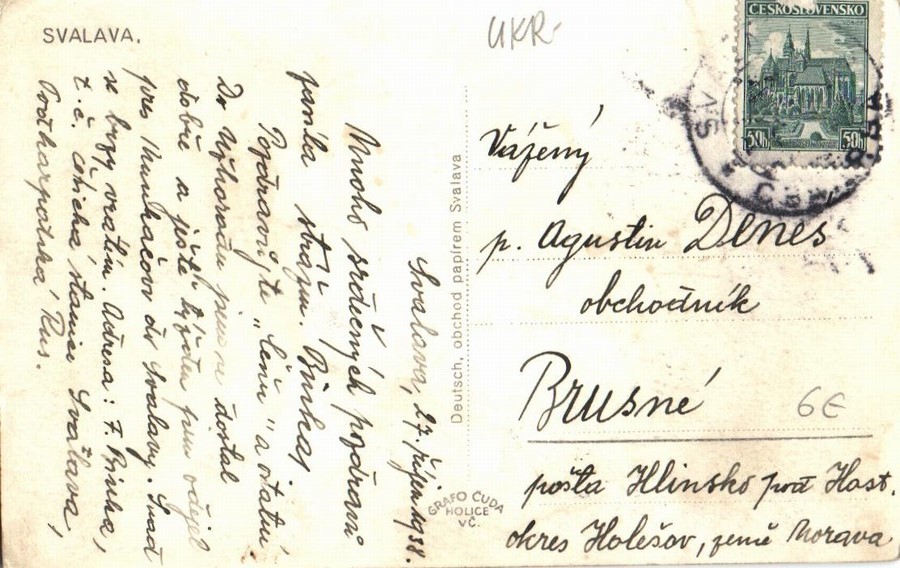 SVALAVA.
UKR
ČESKOSLOVENSKO
50h 50h
Svalava, 27. října 1938.
Mnoho srdečných pozdravů
posílá strýc. Brinkaj
Pozdravujte „ Lenu " a ostatní.
Do Užhorodu jsem dostal
dobře a ještě týž den jsem odejel
přes Munkačov do Svalavy. Snad
se brzy vrátím. Adresa: F.
t. č. četnická stanice Svaľava,
Podkarpatská Rus.
Deutsch, obchod papírem Svalava
GRAFO ČUDA
HOLICE
VČ.
Vážený
p. Agustin Deneš
obchodník
Brusné
6€
pošta Hlinsko pod Host.
okres Holešov, země Morava